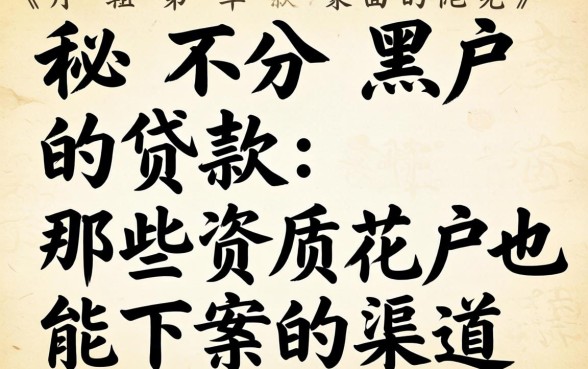 秘 不分 黑户
的贷款：
那些资质花户也
能下案的渠道